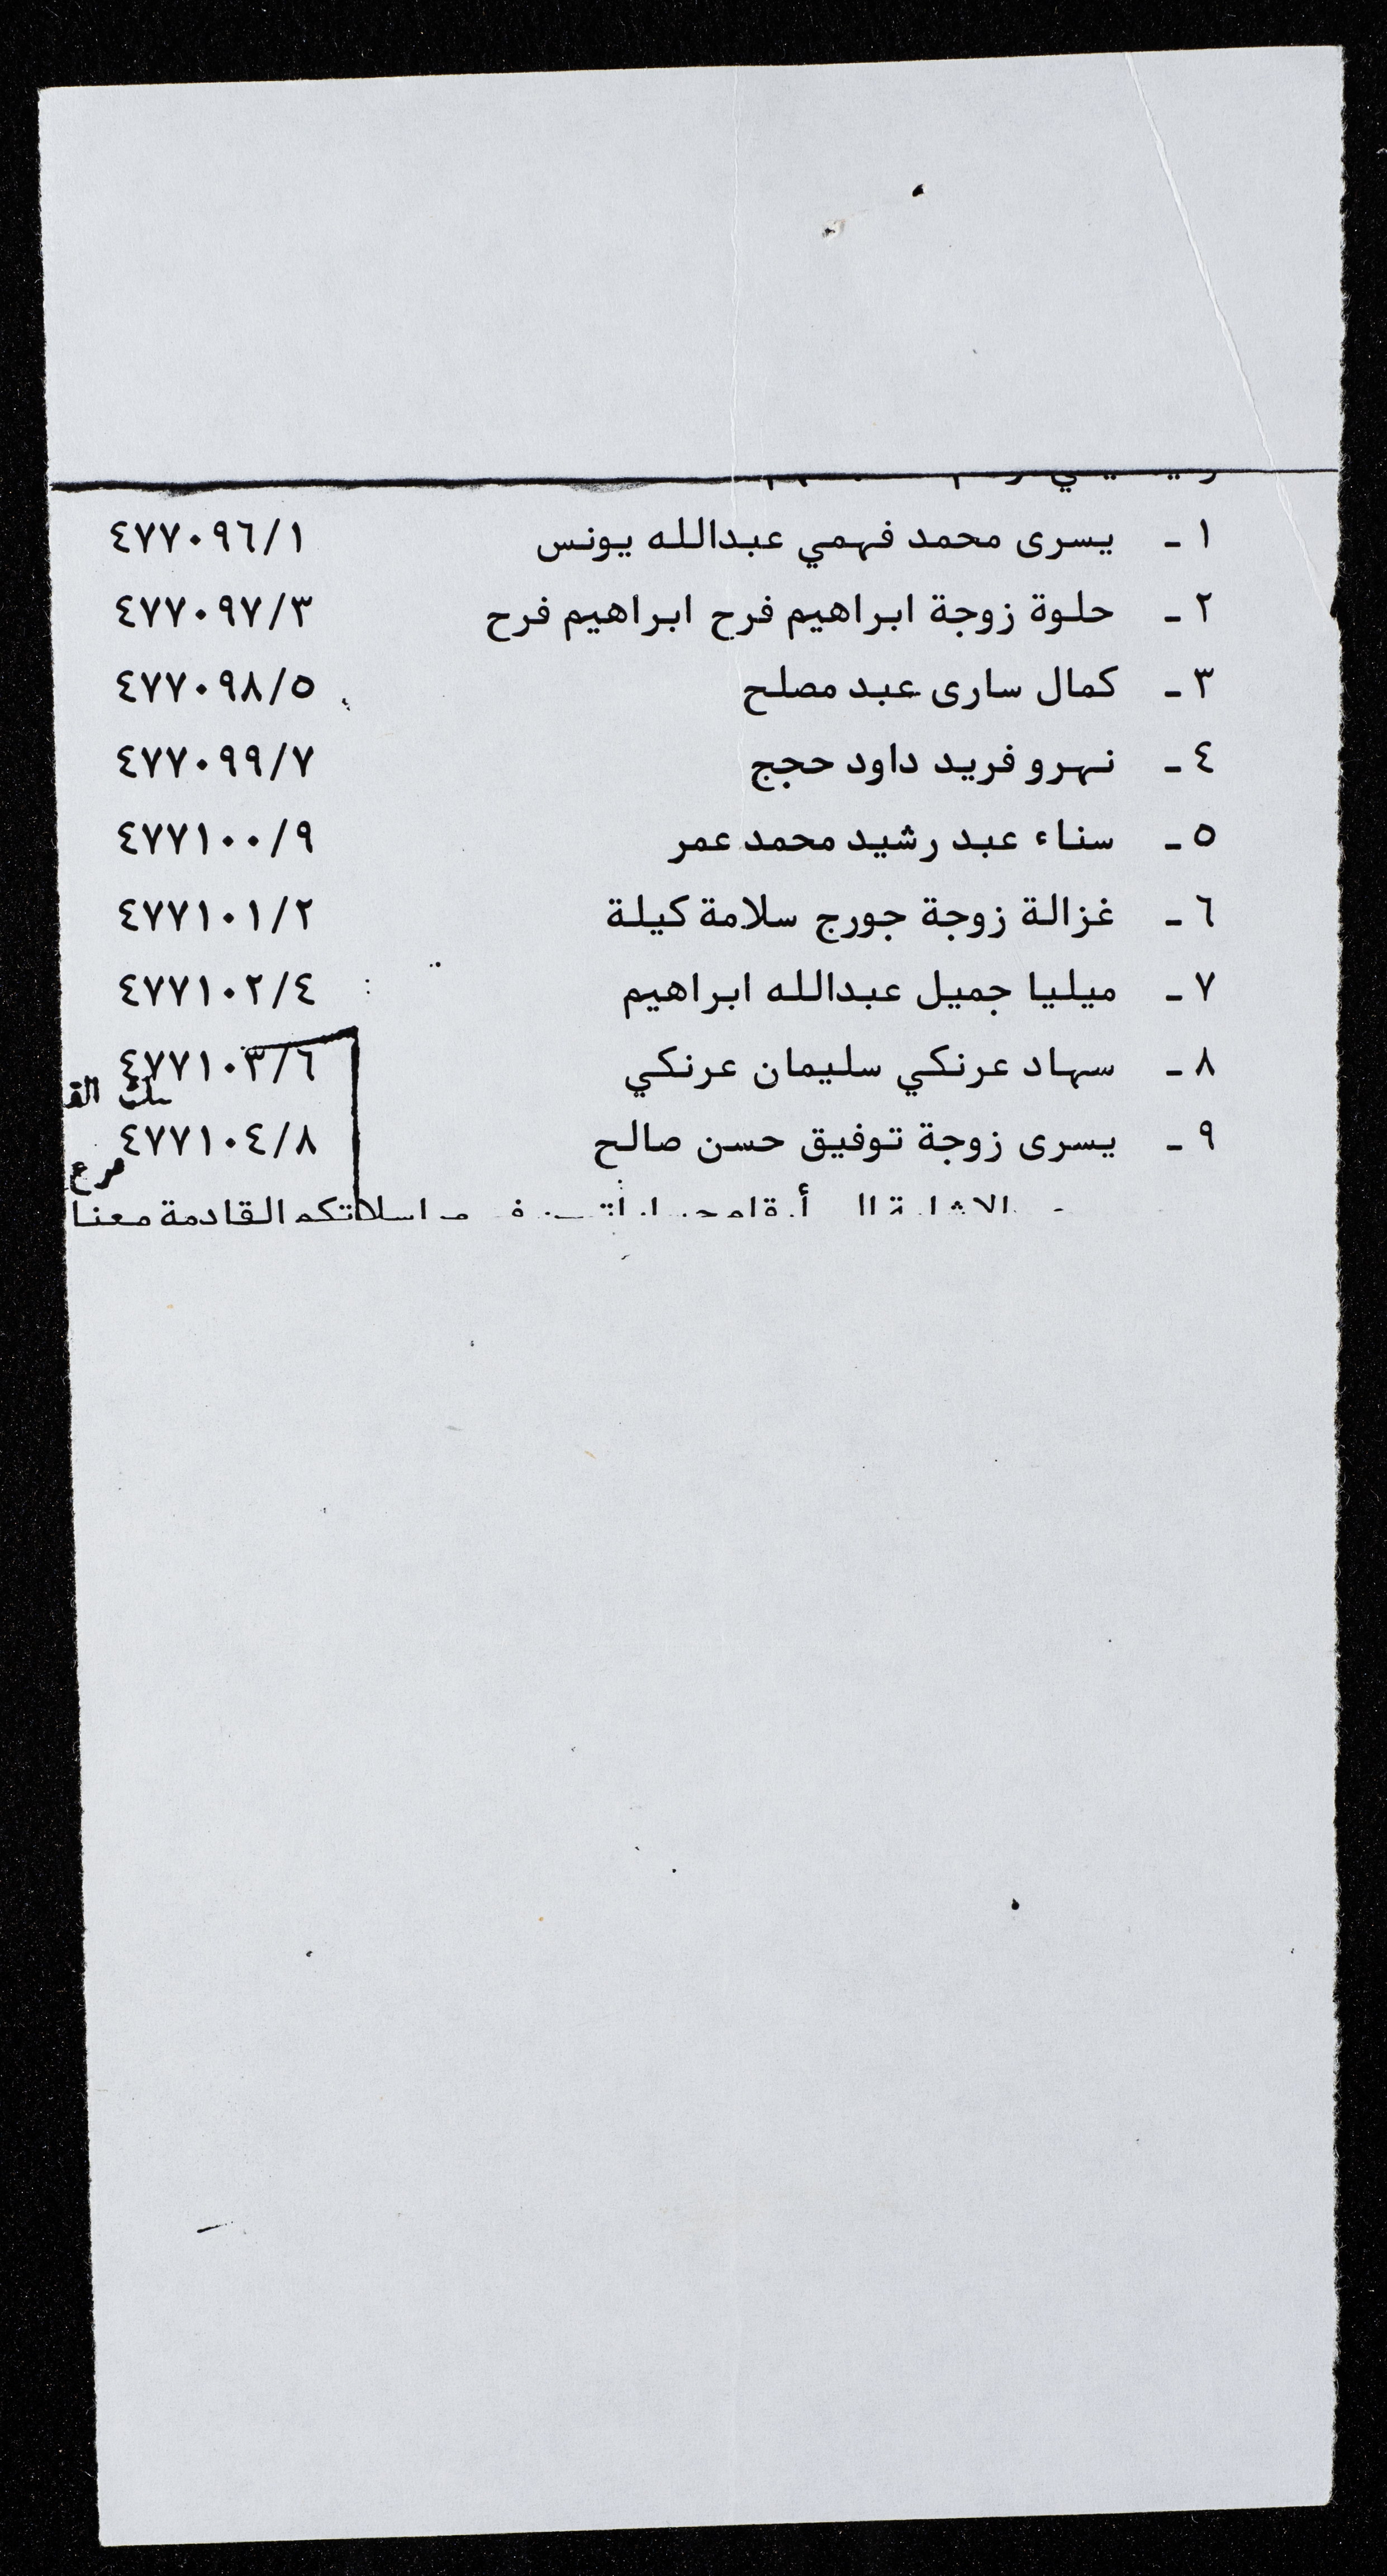 ١ - يسرى محمد فهمي عبدالله يونس ٤٧٧٠٩٦/١
٢ - حلوة زوجة ابراهيم فرح ابراهيم فرح ٤٧٧٠٩٧/٣
٣ - كمال سارى عبد مصلح ٤٧٧٠٩٨/٥
٤ - نهرو فريد داود حجج ٤٧٧٠٩٩/٧
٥ - سناء عبد رشيد محمد عمر ٤٧٧١٠٠/٩
٦ - غزالة زوجة جورج سلامة كيلة ٤٧٧١٠١/٢
٧ - ميليا جميل عبدالله ابراهيم ٤٧٧١٠٢/٤
٨ - سهاد عرنكي سليمان عرنكي ٤٧٧١٠٣/٦
٩ - يسرى زوجة توفيق حسن صالح ٤٧٧١٠٤/٨
القادمة معنا